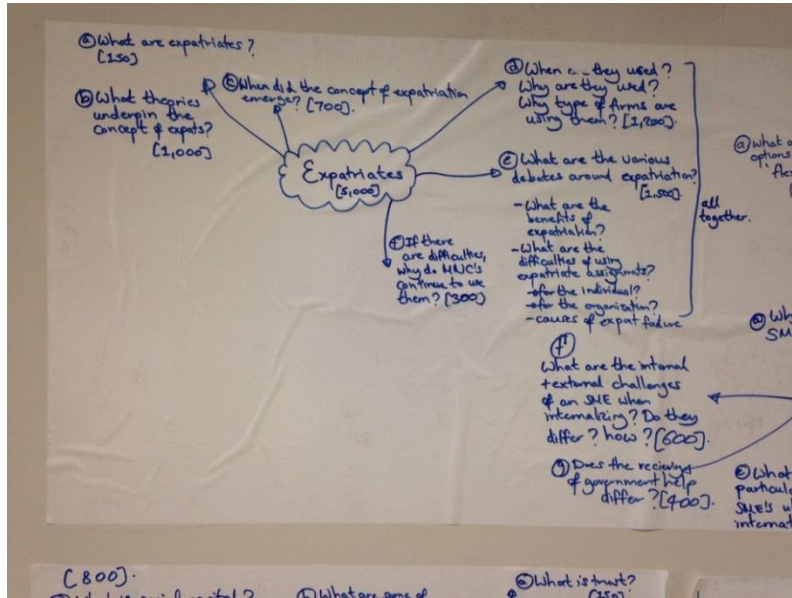 ⓐ What are expatriates?
[150]
ⓑ What theories
underpin the
concept of expats?
[1,000]
ⓒ When did the concept of expatriation
emerge? [700].
Expatriates
[5,000]
ⓓ When they used?
Why are they used?
Why type of firms are
using them? [1,200].
ⓔ What are the various
debates around expatriation?
[1,500]
-What are the
benefits of
expatriation?
-What are the
difficulties of using
expatriate
for the individual?
for the organisation?
-causes of expat failure
all
together.
ⓕ If there
are difficulties,
why do MNC's
continue to use
them? [300]
ⓕ'
What are the internal
+external challenges
of an SME when
Do they
differ? how? [600].
ⓖ Does the
of government help
differ? [400].
ⓐ What
options
ⓐ
SM
ⓔ What
particula
SME's
internat
[800].
ⓑ What are some of
ⓐ What is trust?
[150]